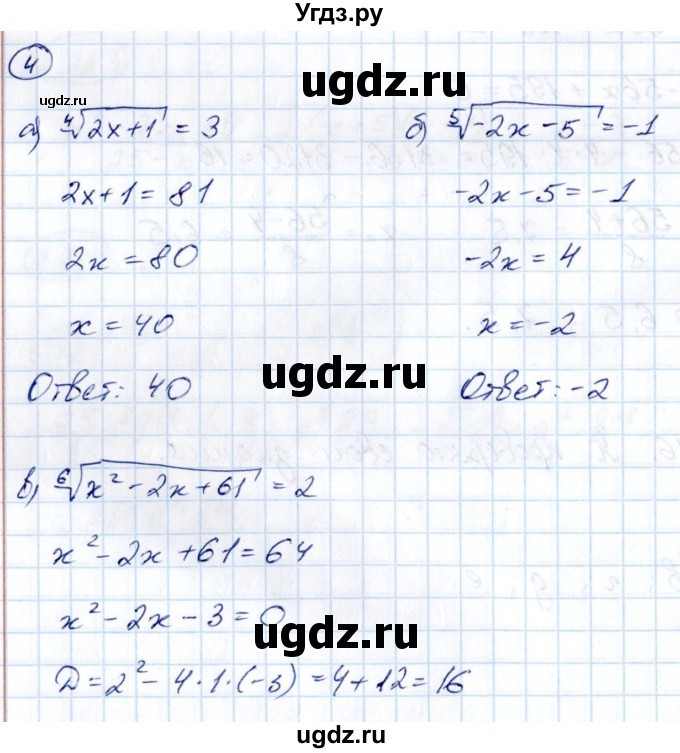 Угдз.ру
4
а) ⁴√(2x+1) = 3
2x+1 = 81
2x = 80
x = 40
Ответ: 40
б) ⁵√(-2x-5) = -1
-2x-5 = -1
-2x = 4
x = -2
Ответ: -2
в) ⁶√(x²-2x+61) = 2
x²-2x+61 = 64
x²-2x-3 = 0
D = 2²-4·1·(-3) = 4+12 = 16
ugdz.ru
ugdz.ru
ugdz.ru
ugdz.ru
ugdz.ru
ugdz.ru
ugdz.ru